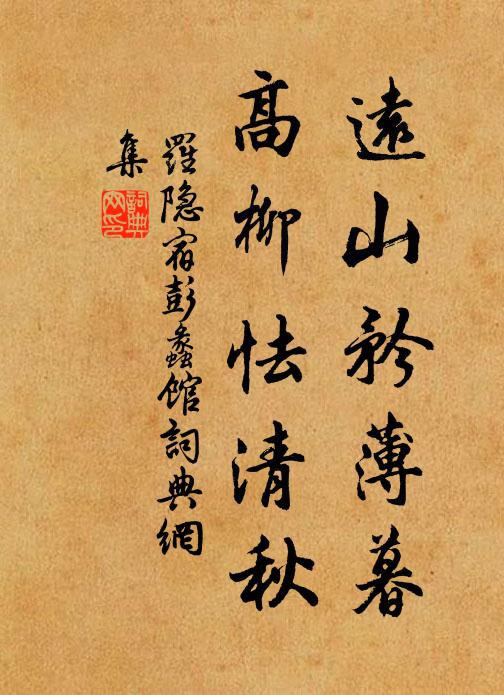 遠山矜薄暮
高柳怯清秋
羅隐宿彭蠡館詞典網
集
詞典
网印